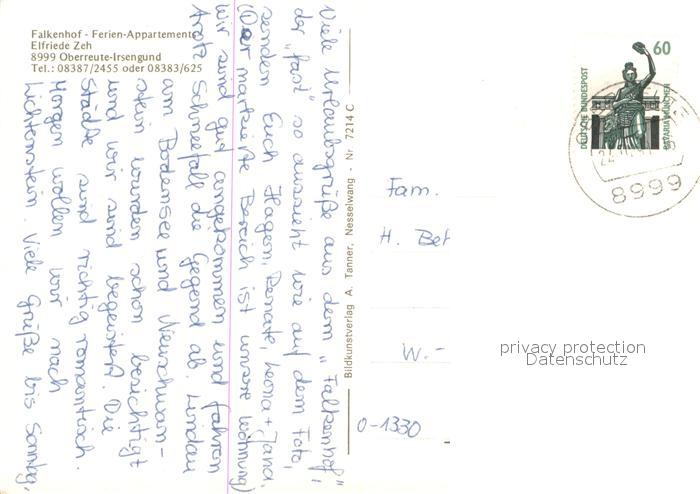 Falkenhof - Ferien-Appartements
Elfriede Zeh
8999 Oberreute-Irsengund
Tel.: 08387/2455 oder 08383/625
Viele Urlaubsgrüße aus dem „Falkenhof“,
der „fast“ so aussieht wie auf dem Foto,
senden Euch Hagen, Renate, Leona + Jana.
(Der markierte Bereich ist unsere Wohnung)
Wir sind gut angekommen und fahren
trotz Schneefall die Gegend ab. Lindau
am Bodensee und Neuschwan-
stein wurden schon besichtigt
und wir sind begeistert. Die
Städte sind richtig romantisch.
Morgen wollen wir nach
Lichtenstein. Viele Grüße bis Sonntag,
Bildkunstverlag A. Tanner, Nesselwang - Nr. 7214 C
60
DEUTSCHE BUNDESPOST
BAVARIA MÜNCHEN
8999
Fam.
H. Bet
W.-
O-1330
privacy protection
Datenschutz